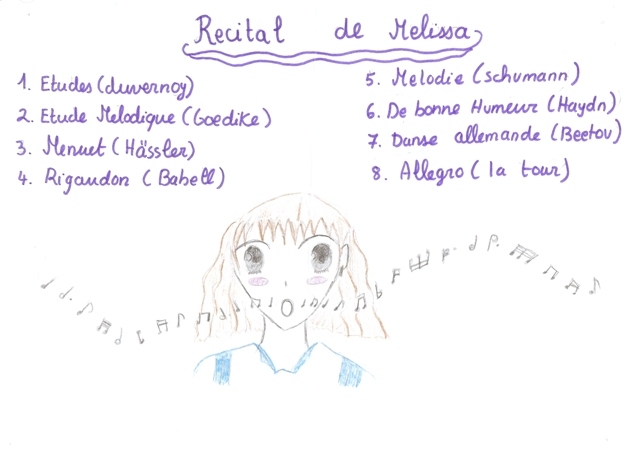 Recital de Melissa
1. Etudes (duvernoy)
2. Etude Melodique (Goedike)
3. Menuet (Hässler)
4. Rigaudon (Babell)
5. Melodie (schumann)
6. De bonne Humeur (Haydn)
7. Danse allemande (Beetov)
8. Allegro (la tour)